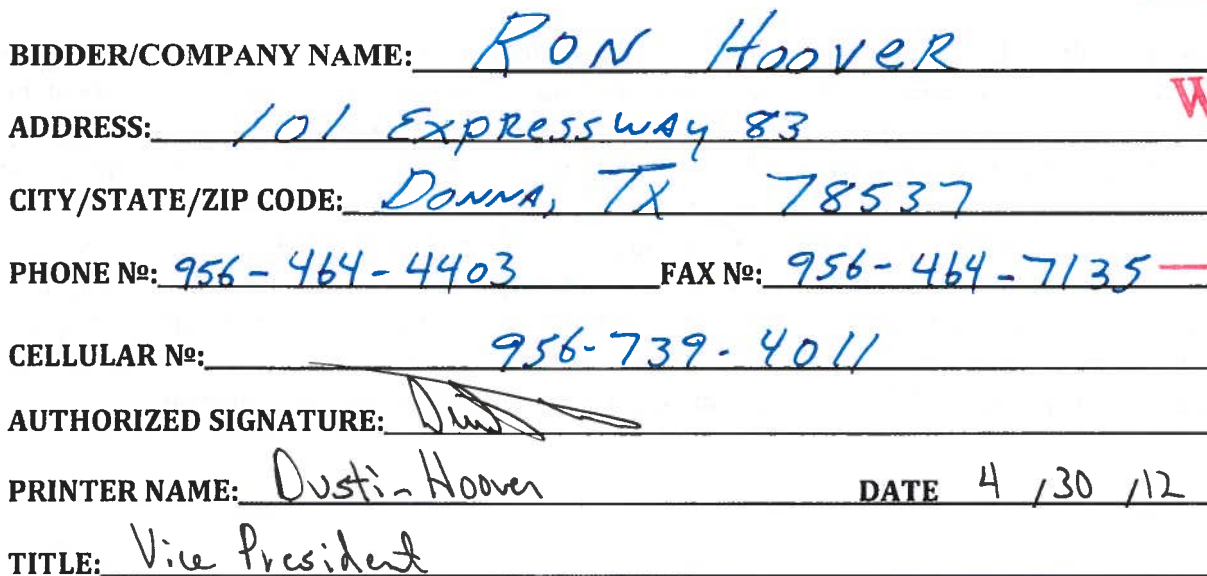 BIDDER/COMPANY NAME: RON HOOVER
W
ADDRESS: 101 EXPRESSWAY 83
CITY/STATE/ZIP CODE: DONNA, TX 78537
PHONE Nº: 956-464-4403 FAX Nº: 956-464-7135
CELLULAR Nº: 956-739-4011
AUTHORIZED SIGNATURE:
PRINTER NAME: Dustin Hoover DATE 4/30/12
TITLE: Vice President